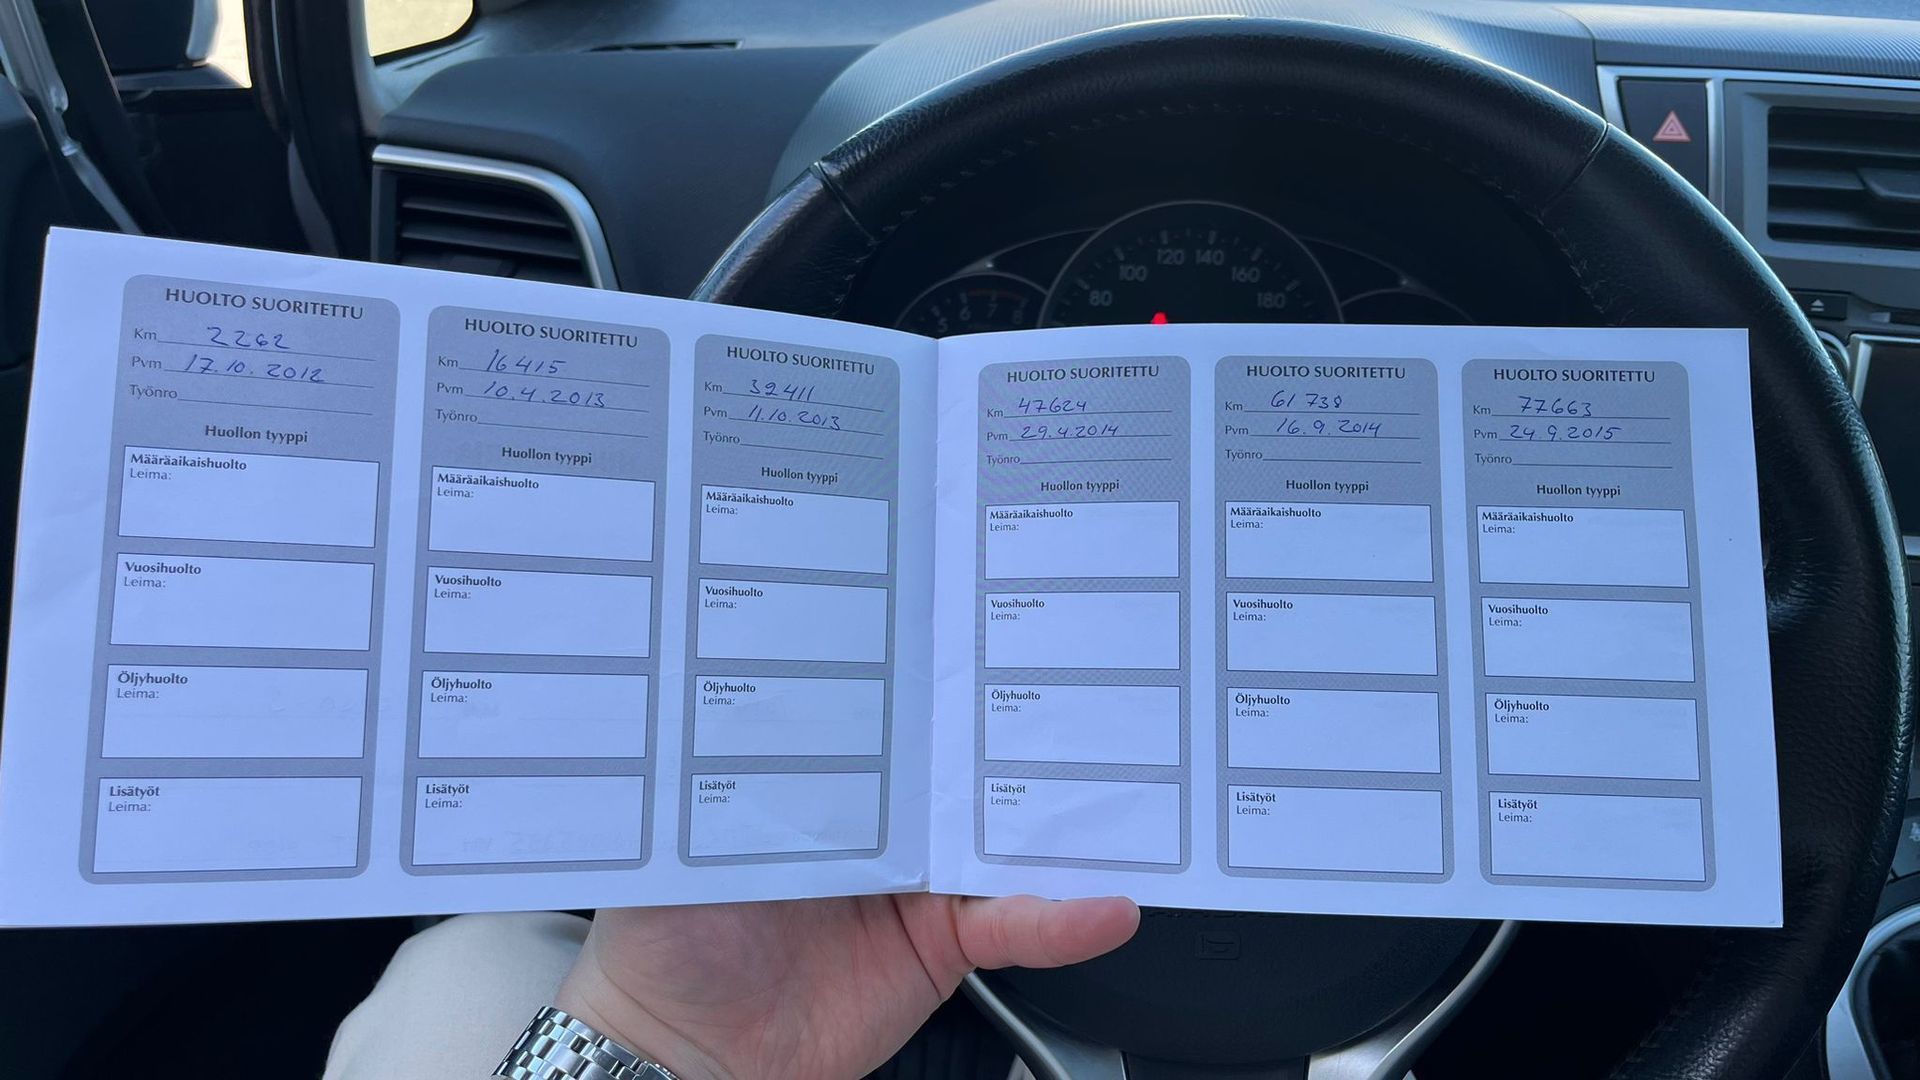 HUOLTO SUORITETTU
Km 2262
Pvm 17.10.2012
Työnro
Huollon tyyppi
Määräaikaishuolto
Leima:
Vuosihuolto
Leima:
Öljyhuolto
Leima:
Lisätyöt
Leima:
HUOLTO SUORITETTU
Km 16415
Pvm 10.4.2013
Työnro
Huollon tyyppi
Määräaikaishuolto
Leima:
Vuosihuolto
Leima:
Öljyhuolto
Leima:
Lisätyöt
Leima:
HUOLTO SUORITETTU
Km 32411
Pvm 11.10.2013
Työnro
Huollon tyyppi
Määräaikaishuolto
Leima:
Vuosihuolto
Leima:
Öljyhuolto
Leima:
Lisätyöt
Leima:
HUOLTO SUORITETTU
Km 47624
Pvm 29.4.2014
Työnro
Huollon tyyppi
Määräaikaishuolto
Leima:
Vuosihuolto
Leima:
Öljyhuolto
Leima:
Lisätyöt
Leima:
HUOLTO SUORITETTU
Km 61738
Pvm 16.9.2014
Työnro
Huollon tyyppi
Määräaikaishuolto
Leima:
Vuosihuolto
Leima:
Öljyhuolto
Leima:
Lisätyöt
Leima:
HUOLTO SUORITETTU
Km 77663
Pvm 24.9.2015
Työnro
Huollon tyyppi
Määräaikaishuolto
Leima:
Vuosihuolto
Leima:
Öljyhuolto
Leima:
Lisätyöt
Leima:
80 100 120 140 160 180
5 6 7 8